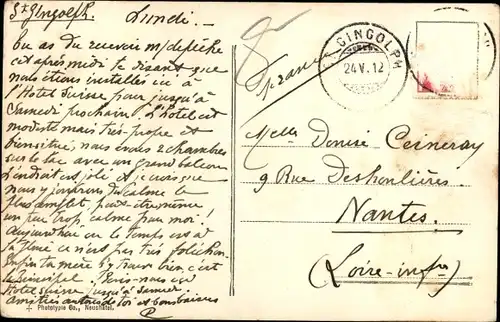 St Gingolph. Lundi. —
Tu as dû recevoir m/ dépêche
cet après midi te disant que
nous étions installés ici à
l'Hôtel Suisse pour jusqu'à
Samedi prochain. L'hôtel est
modeste mais très propre et
bien situé, nous avons 2 chambres
sur le lac avec un grand balcon
L'endroit est joli et je crois que
nous y jouirons du calme le
plus complet, peut-être même
un peu trop calme pour moi!
Aujourd'hui où le temps est à
la pluie ce n'est pas très folichon.
Enfin ta mère s'y trouve bien, c'est
le principal. Écris-nous ici
Hôtel Suisse jusqu'à Samedi
amitiés autour de toi et bons baisers
P
Phototypie Co., Neuchâtel.
ST GINGOLPH
24.V.12
France
Melle Denise Ceineray
9 Rue Deshoulières
Nantes.
(Loire-infre)